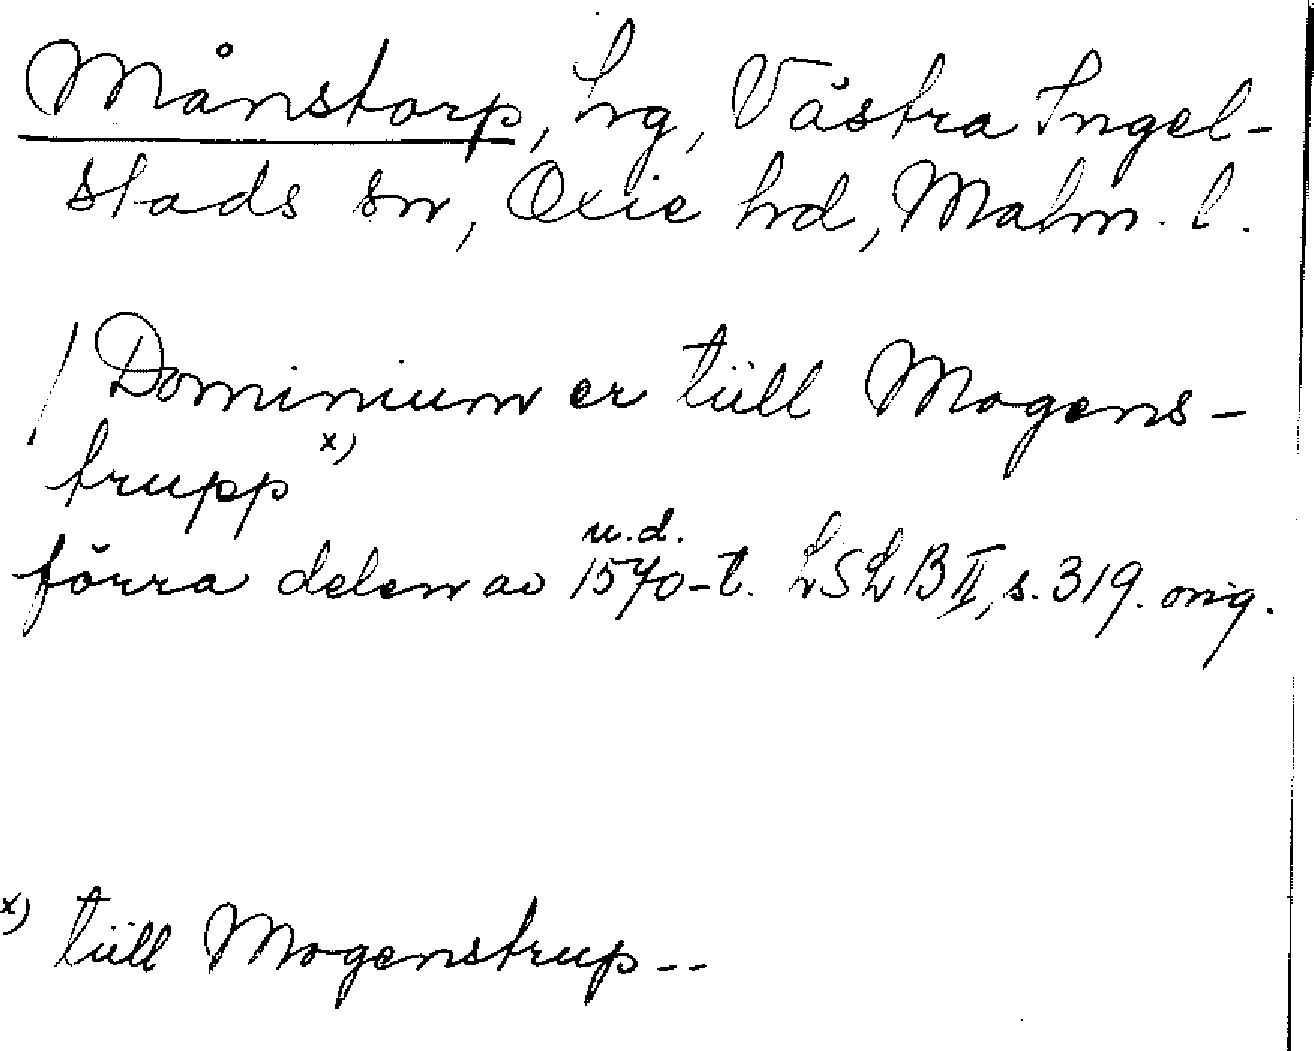 Månstorp, hrg, Västra Ingel-
stads sn, Oxie hd, Malm. l.
/ Dominium er tüll Mogens-
trupp x)
u.d.
förra delen av 1570-t. LSLB II, s. 319. orig.
x) tüll Mogenstrup --